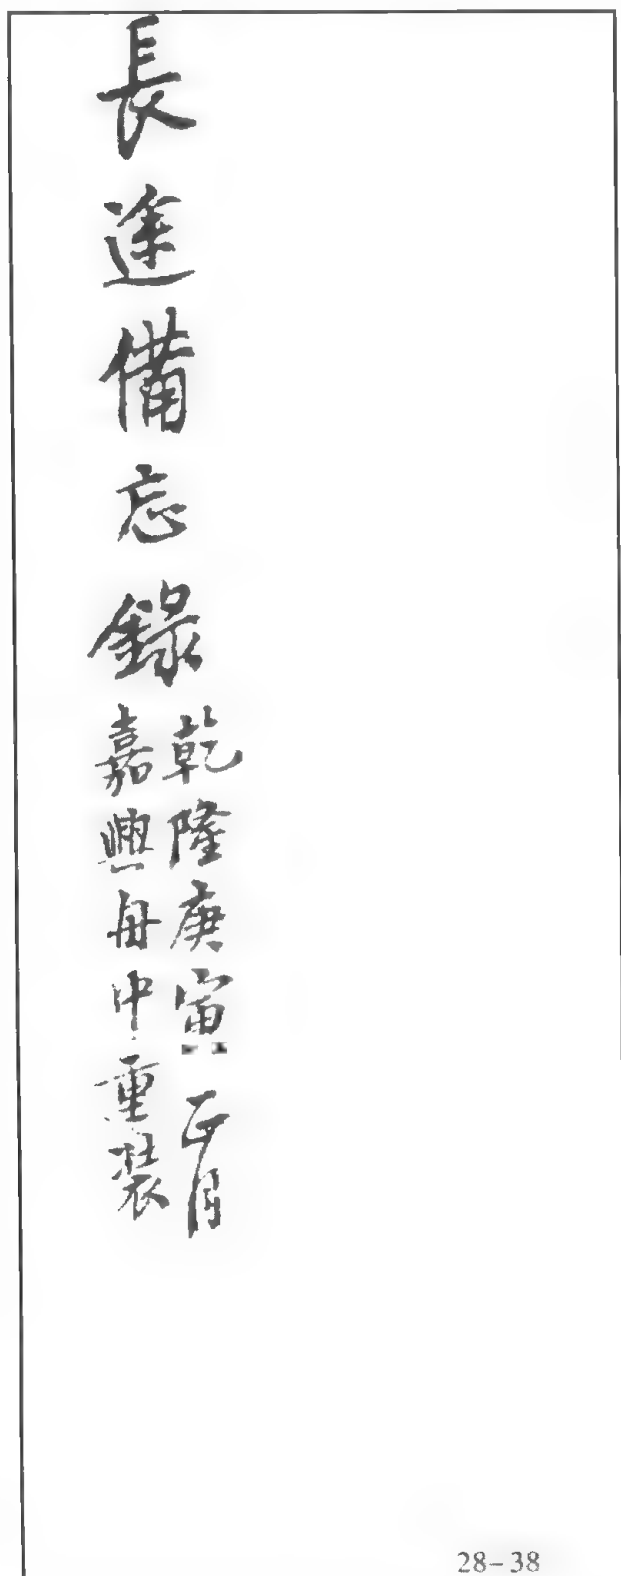 長途備忘錄
乾隆庚寅正月
嘉興舟中重裝
28-38